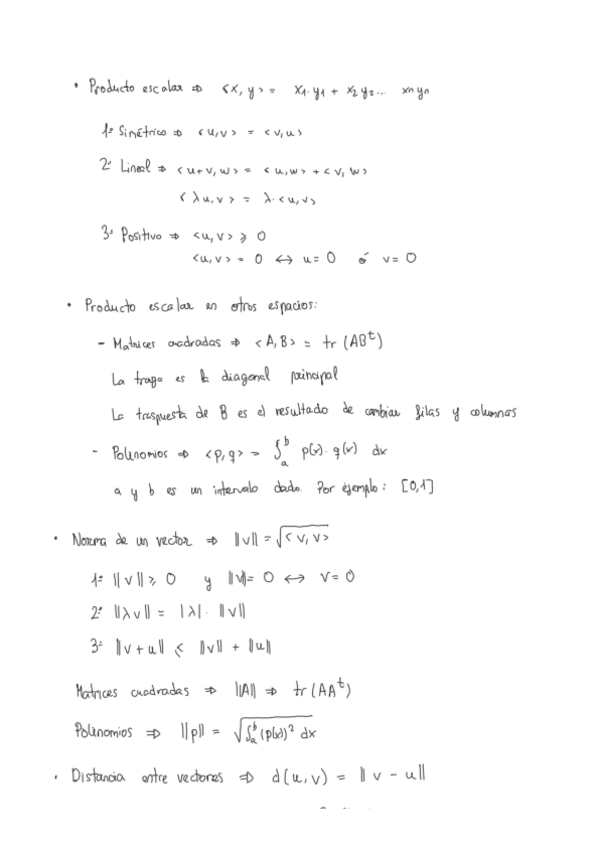 • Producto escalar ⇒ <x, y> = x₁·y₁ + x₂y₂... xnyn
1º Simétrico ⇒ <u,v> = <v,u>
2º Lineal ⇒ <u+v, w> = <u,w> + <v, w>
<λu,v> = λ·<u,v>
3º Positivo ⇒ <u,v> ≥ 0
<u,v> = 0 ↔ u = 0 ó v = 0
• Producto escalar en otros espacios:
- Matrices cuadradas ⇒ <A,B> = tr(ABᵗ)
La traza es la diagonal principal
La traspuesta de B es el resultado de cambiar filas y columnas
- Polinomios ⇒ <p,q> = ∫ₐᵇ p(x)·q(x) dx
a y b es un intervalo dado. Por ejemplo: [0,1]
• Norma de un vector ⇒ ||v|| = √<v,v>
1º ||v|| ≥ 0 y ||v|| = 0 ↔ v = 0
2º ||λv|| = |λ|·||v||
3º ||v+u|| ≤ ||v|| + ||u||
Matrices cuadradas ⇒ ||A|| ⇒ tr(AAᵗ)
Polinomios ⇒ ||p|| = √∫ₐᵇ(p(x))² dx
• Distancia entre vectores ⇒ d(u,v) = ||v - u||